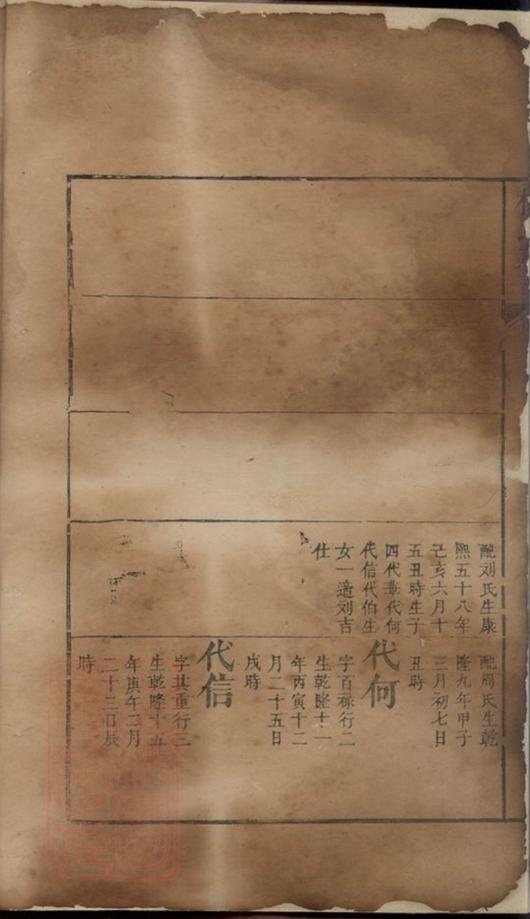 配刘氏生康
熙五十八年
己亥六月十
五丑時生子
四代華代何
代信代伯生
女一適刘吉
仕
配周氏生乾
隆九年甲子
三月初七日
丑時
代何
字百祿行二
生乾隆十一
年丙寅十二
月二十五日
戌時
代信
字其重行三
生乾隆十五
年庚午二月
二十三日辰
時